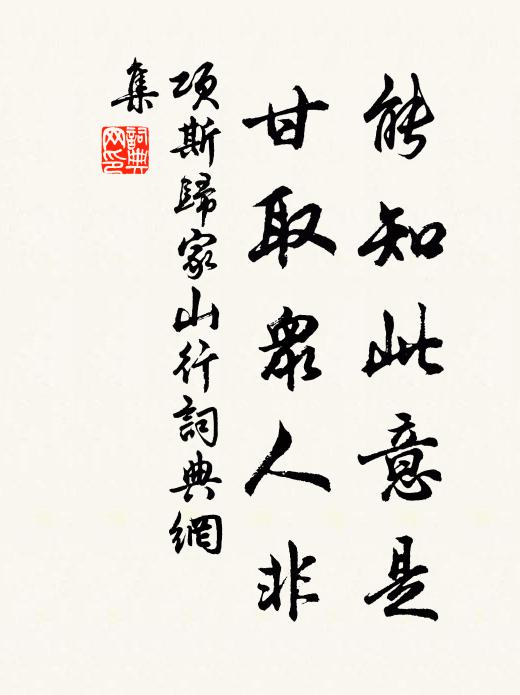 能知此意是
甘取眾人非
項斯歸家山行詞典網
集
詞典
网印